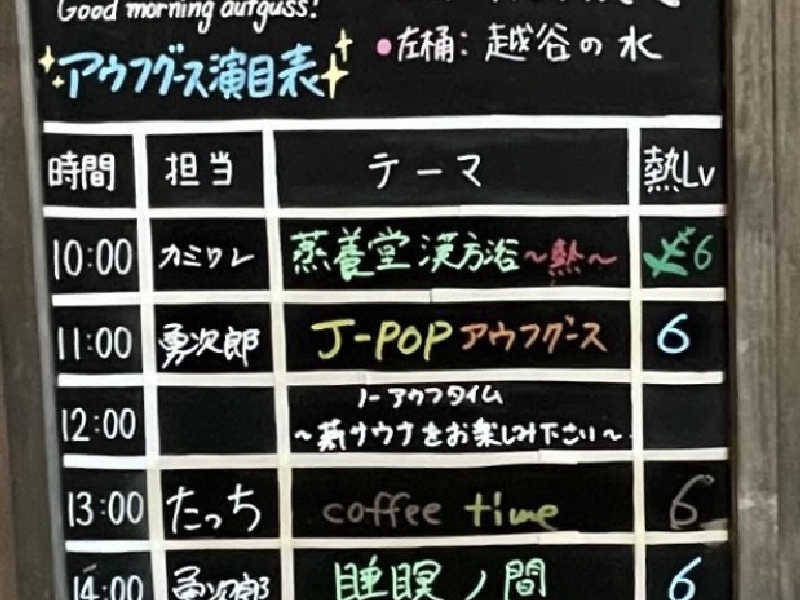 Good morning aufguss!
●左桶: 越谷の水
アウフグース演目表
時間 担当 テーマ 熱Lv
10:00 カミワレ 蒸養堂 漢方浴 ~熱~ 6
11:00 勇次郎 J-POP アウフグース 6
12:00 ノーアウフタイム
~薪サウナをお楽しみ下さい~
13:00 たっち coffee time 6
14:00 勇次郎 睡眠ノ間 6